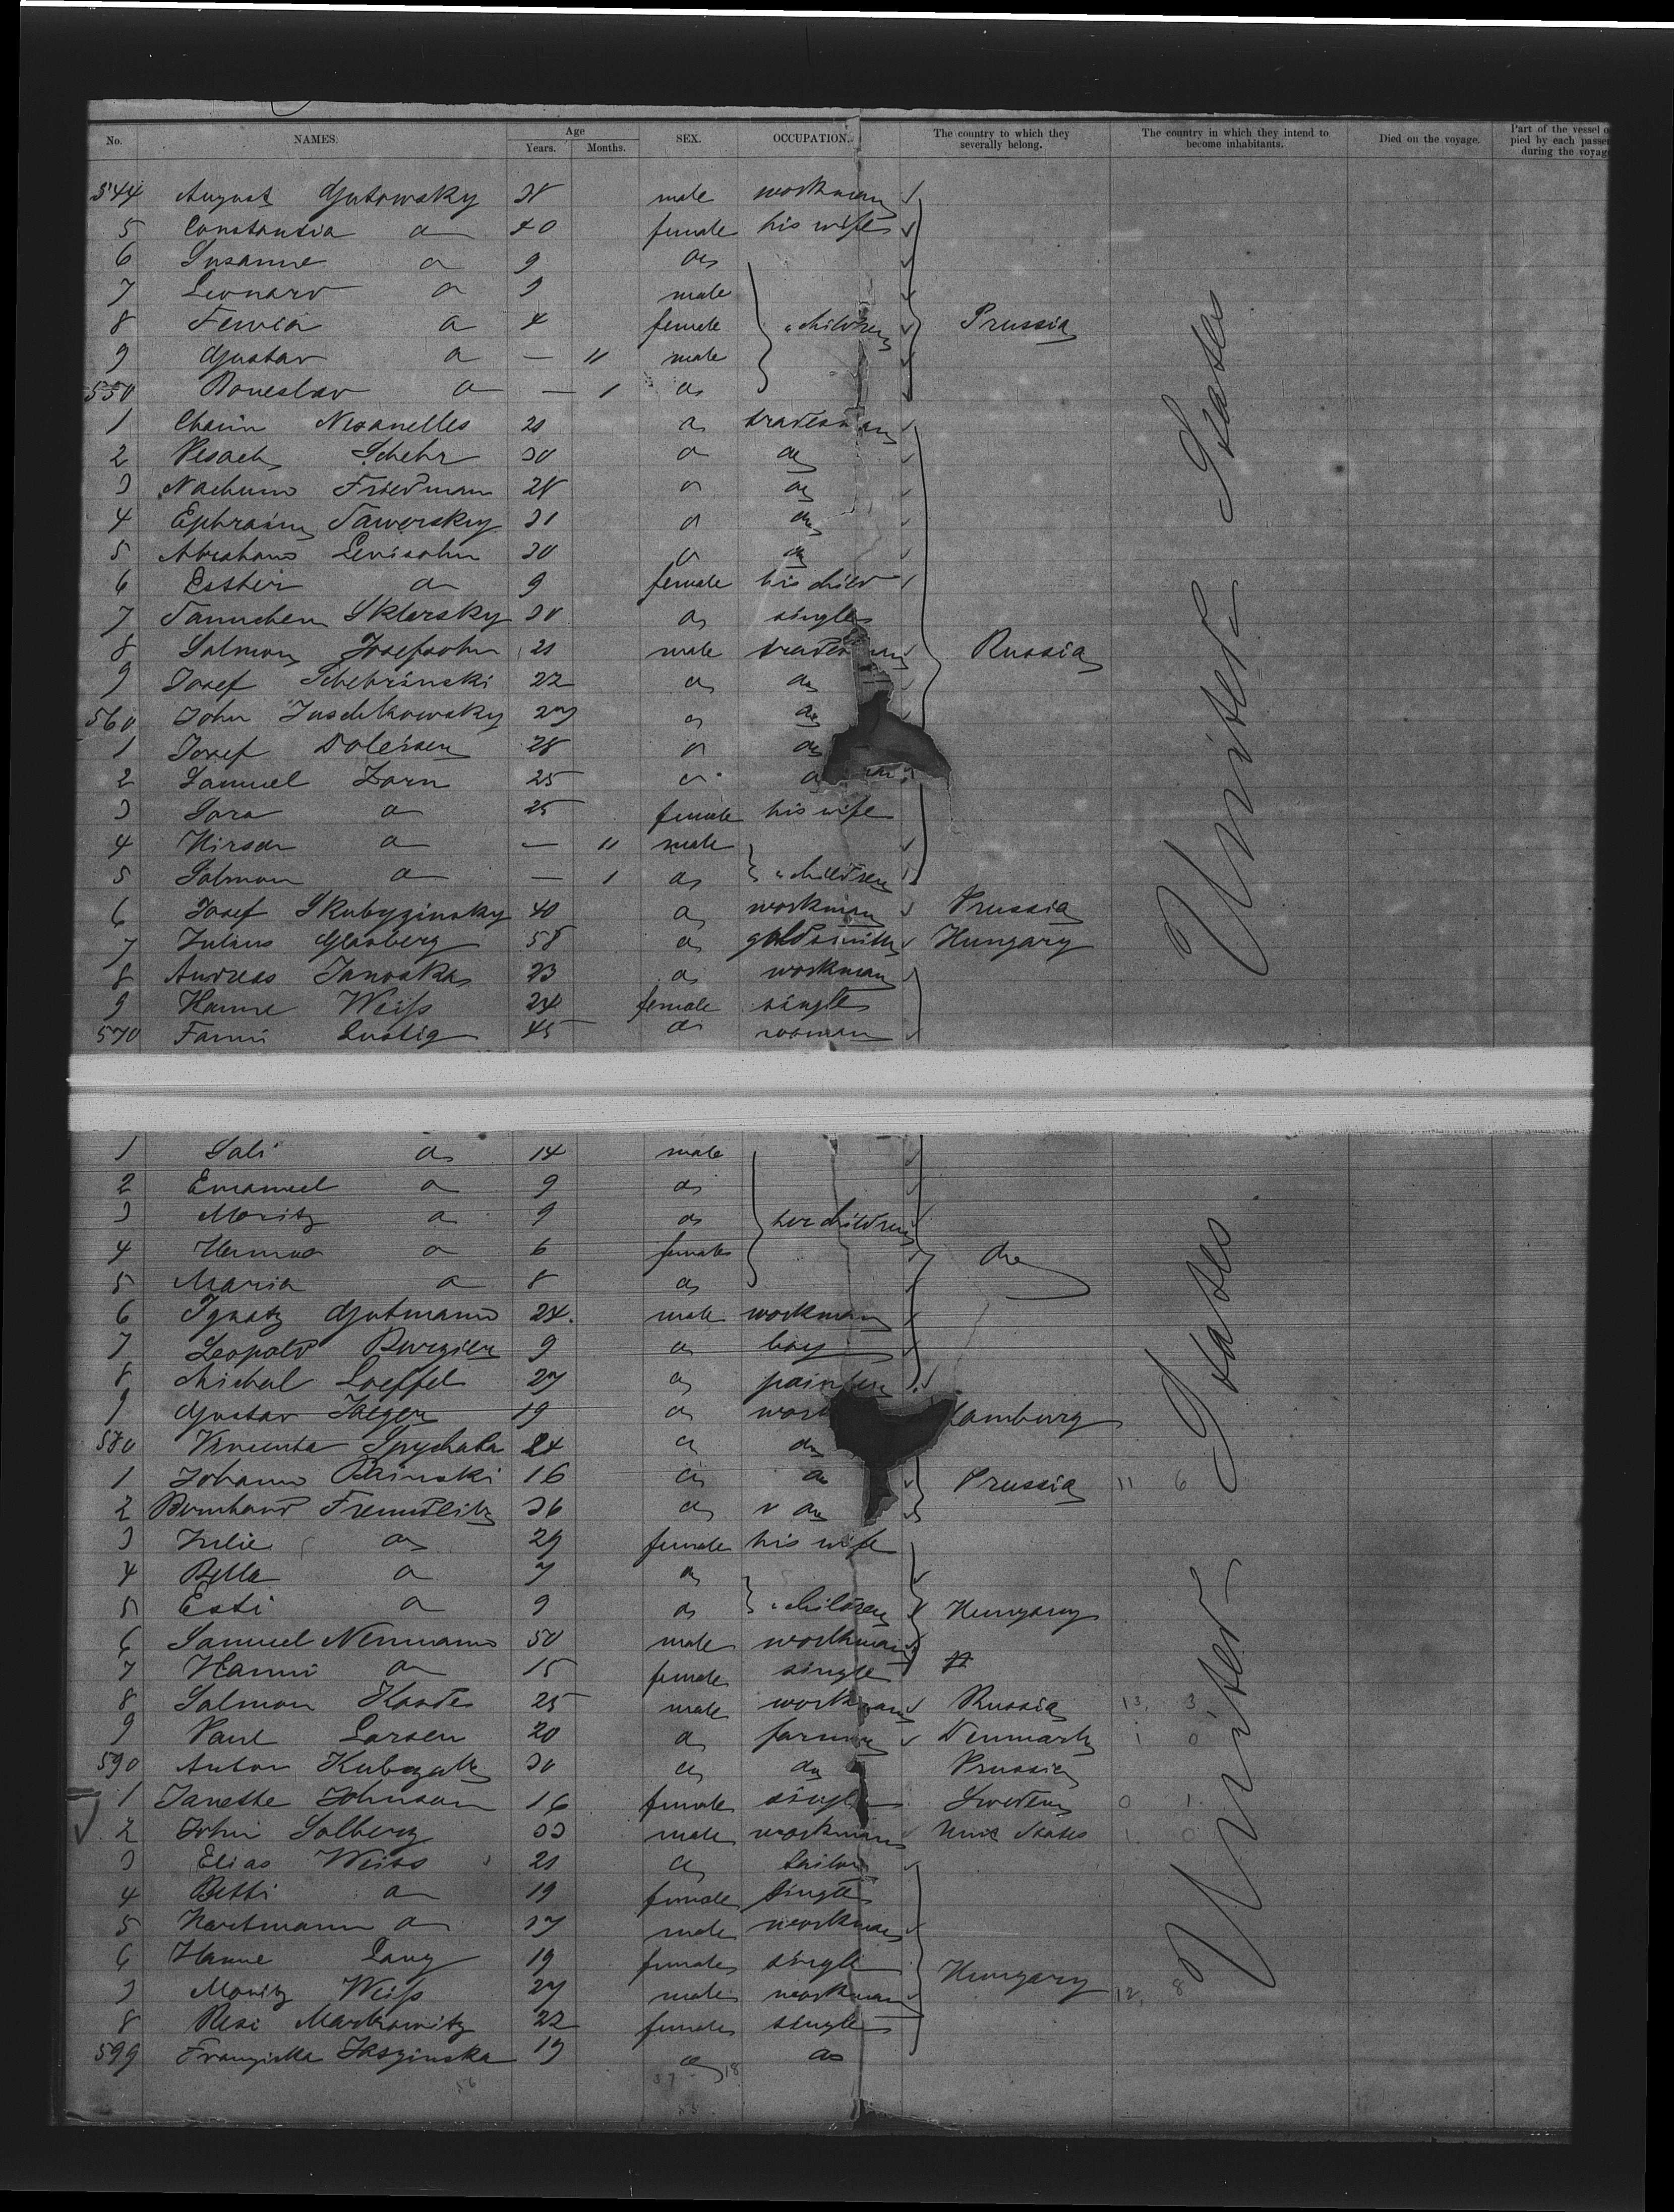 No. NAMES. Age Years. Months. SEX. OCCUPATION. The country to which they severally belong. The country in which they intend to become inhabitants. Died on the voyage. Part of the vessel o pied by each passe during the voyag
544 August Gutowsky 38 male workman
5 Constantia do 40 female his wife
6 Susanne do 9 do
7 Leonard do 9 male
8 do 4 female children Prussia
9 Gustav do — 11 male
550 Boneslav do — 1 do
1 Chaim 21 do tradesman
2 Pesach Schehr 30 do do
3 Nachum Friedman 28 do do
4 Ephraim Tawersky 31 do do
5 Abraham Levisohn 30 do do
6 Esther do 9 female his child
7 Sklarsky 30 do single
8 Salmon Josefsohn 21 male tradesman Russia
9 Josef Schebrinski 22 do do
560 John Juschkowsky 27 do do
1 Josef 28 do do
2 Samuel Zorn 25 do
3 Sara do 25 female his wife
4 Hirsch do — 11 male
5 Salmon do — 1 do children
6 Josef 40 do workman Prussia
7 Julius Glasberg 58 do goldsmith Hungary
8 Andreas Janoska 23 do workman
9 Hanne Weiss 24 female single
570 Fanni Lustig 45 do woman
United States
1 Sali do 14 male
2 Emanuel do 9 do
3 Moritz do 9 do her children
4 do 6 female do
5 Maria do 8 do
6 Ignatz Gutmann 24 male workman
7 Leopold 9 do boy
8 Michal Loeffel 27 do painter
9 Gustav Jaeger 19 do work amburg
580 Vincenta Spychala 24 do do
1 Johann 16 do do Prussia 11 6
2 Bernhard Freundlich 36 do do
3 Julie do 29 female his wife
4 Bella do 7 do
5 Esti do 9 do children Hungary
6 Samuel Neumann 50 male workman
7 Hanni do 15 female single
8 Salmon 25 male workman Russia 13 3
9 Paul Larsen 20 do farmer Denmark 1 0
590 Anton 30 do do Prussia
1 Janette Johnson 16 female single Sweden 0 1
2 John Solberg 33 male workman Unit States 1 0
3 Elias Weiss 21 do tailor
4 Betti do 19 female single
5 Hartmann do 17 male workman
6 Hanne Lang 19 female single Hungary 12 8
7 Moritz Weiss 27 male workman
8 Resi Markowitz 22 female single
599 Franziska 19 do do
United States